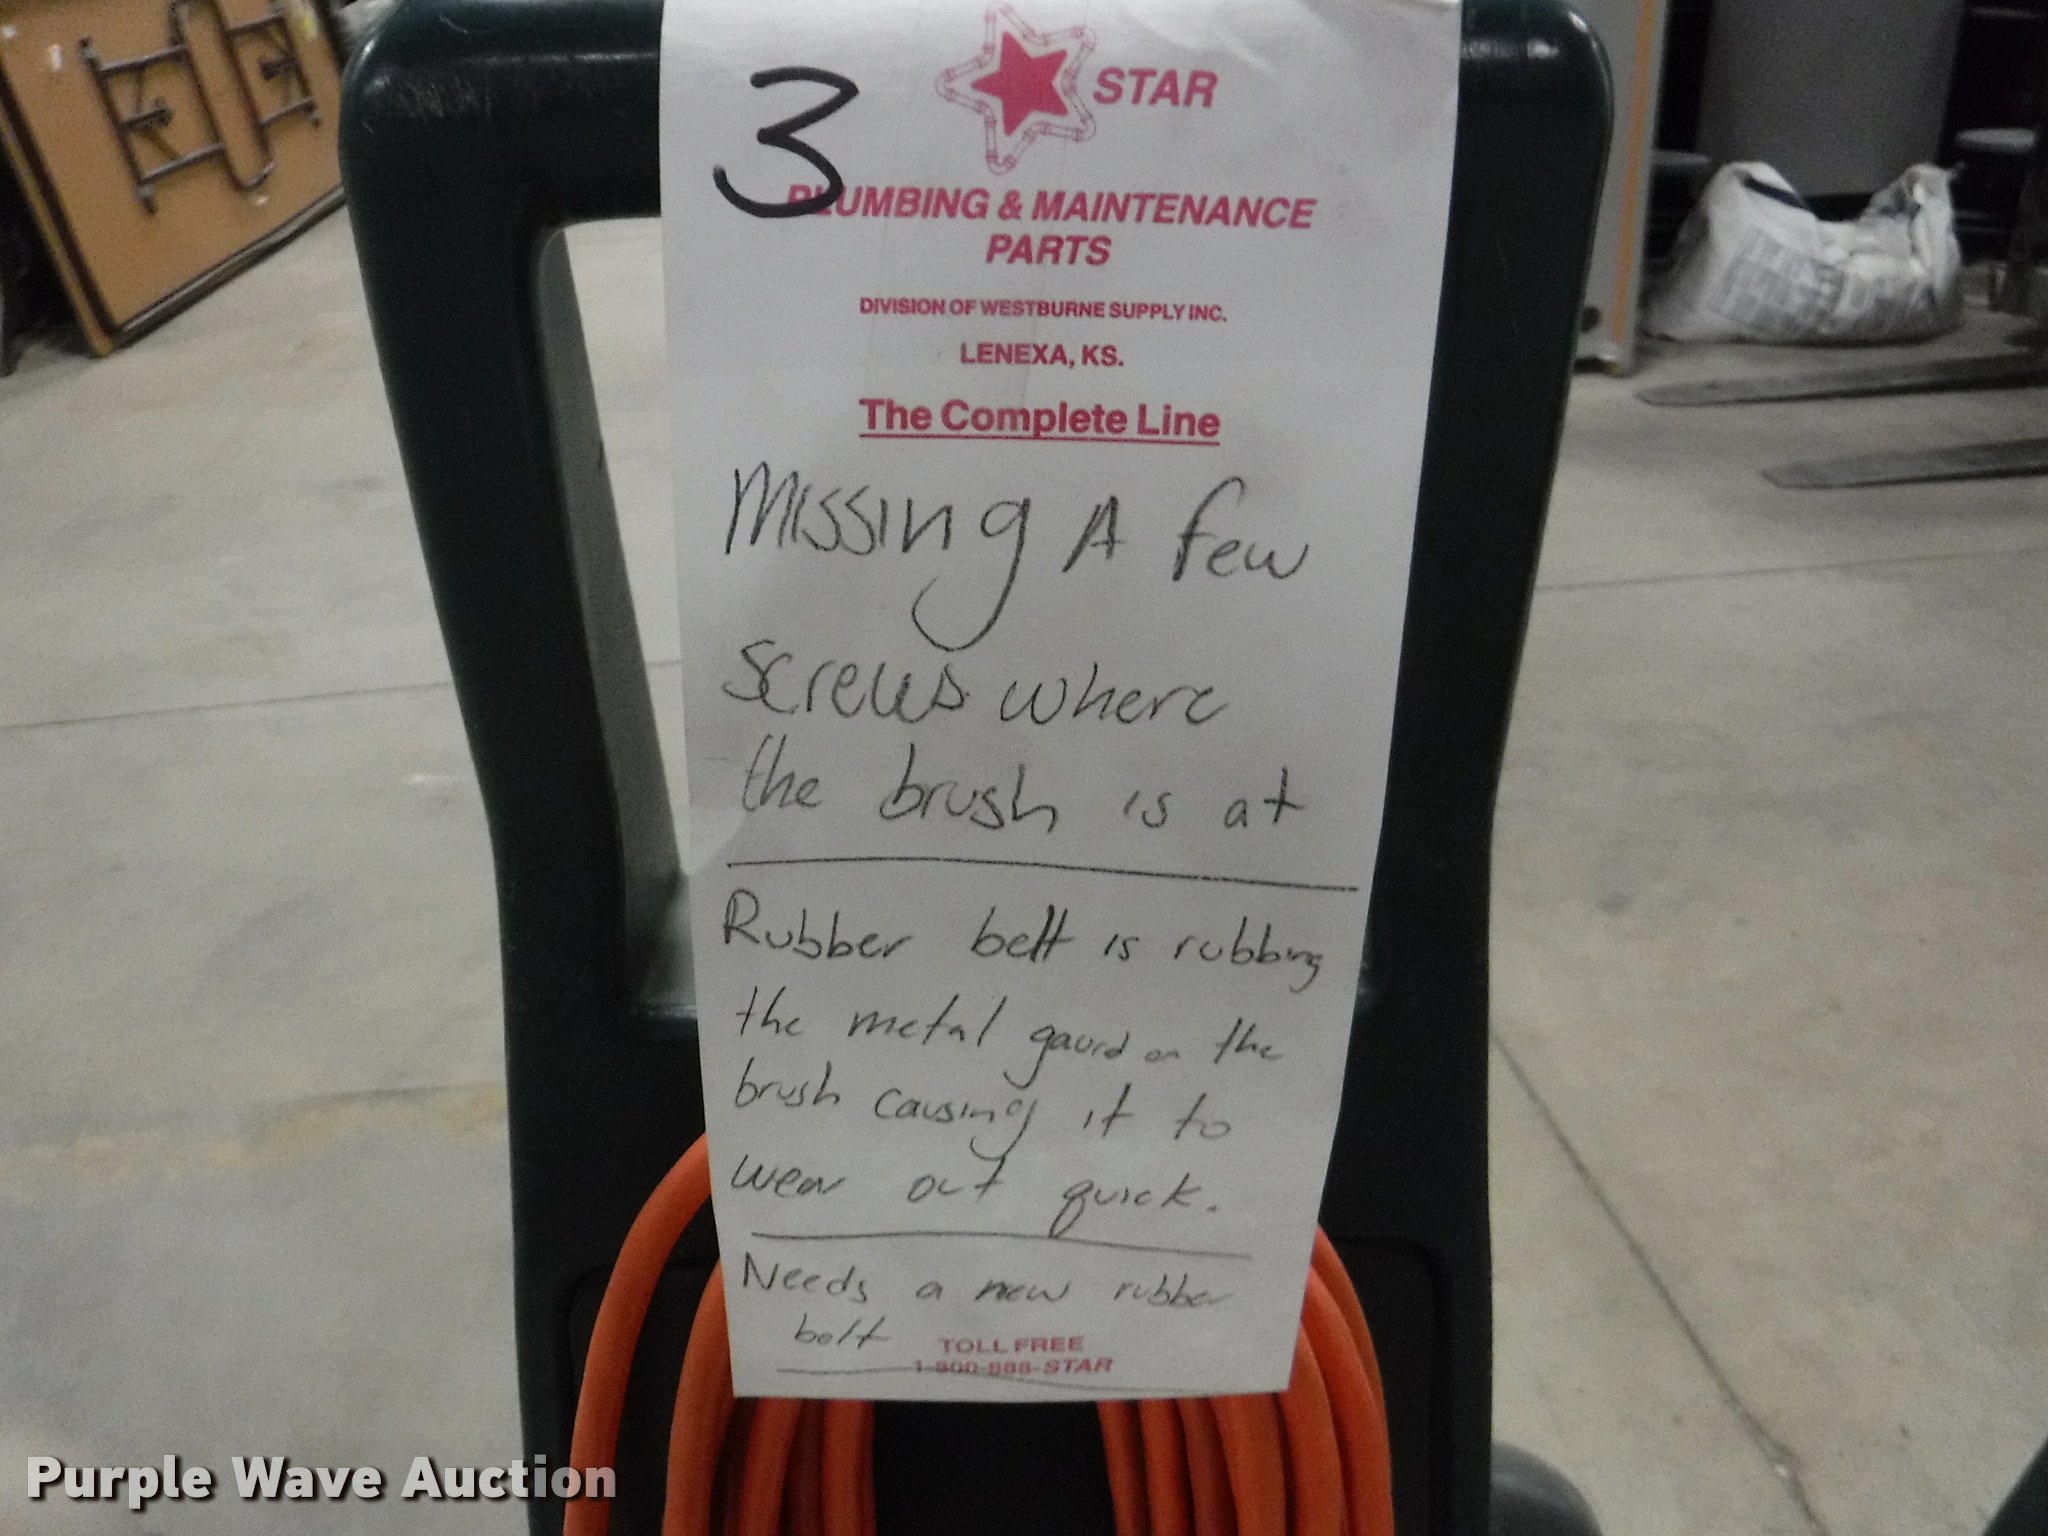 3
STAR
PLUMBING & MAINTENANCE
PARTS
DIVISION OF WESTBURNE SUPPLY INC.
LENEXA, KS.
The Complete Line
Missing A few
screws where
the brush is at
Rubber belt is rubbing
the metal gaurd on the
brush causing it to
wear out quick.
Needs a new rubber
belt
TOLL FREE
1-800-888-STAR
Purple Wave Auction